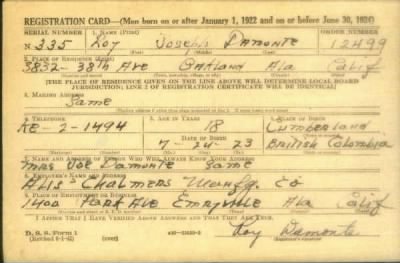 REGISTRATION CARD—(Men born on or after January 1, 1922 and on or before June 30, 1924)
SERIAL NUMBER 1. NAME (Print) ORDER NUMBER
N 335 Roy Joseph Damonte 12499
(First) (Middle) (Last)
2. PLACE OF RESIDENCE (Print)
3832-38th Ave Oakland Ala Calif
(Number and street) (Town, township, village, or city) (County) (State)
[THE PLACE OF RESIDENCE GIVEN ON THE LINE ABOVE WILL DETERMINE LOCAL BOARD
JURISDICTION; LINE 2 OF REGISTRATION CERTIFICATE WILL BE IDENTICAL]
3. MAILING ADDRESS
Same
4. TELEPHONE 5. AGE IN YEARS 6. PLACE OF BIRTH
KE-2-1494 18 Cumberland
DATE OF BIRTH
7-24-23 British Colombia
7. NAME AND ADDRESS OF PERSON WHO WILL ALWAYS KNOW YOUR ADDRESS
Mrs Joe Damonte Same
8. EMPLOYER'S NAME AND ADDRESS
Alis-Chalmers Manfg. Co
9. PLACE OF EMPLOYMENT OR BUSINESS
1400 Park Ave Emryville Ala Calif
I AFFIRM THAT I HAVE VERIFIED ABOVE ANSWERS AND THAT THEY ARE TRUE.
D. S. S. Form 1
(Revised 6-1-42) Roy Damonte
(Registrant's signature)